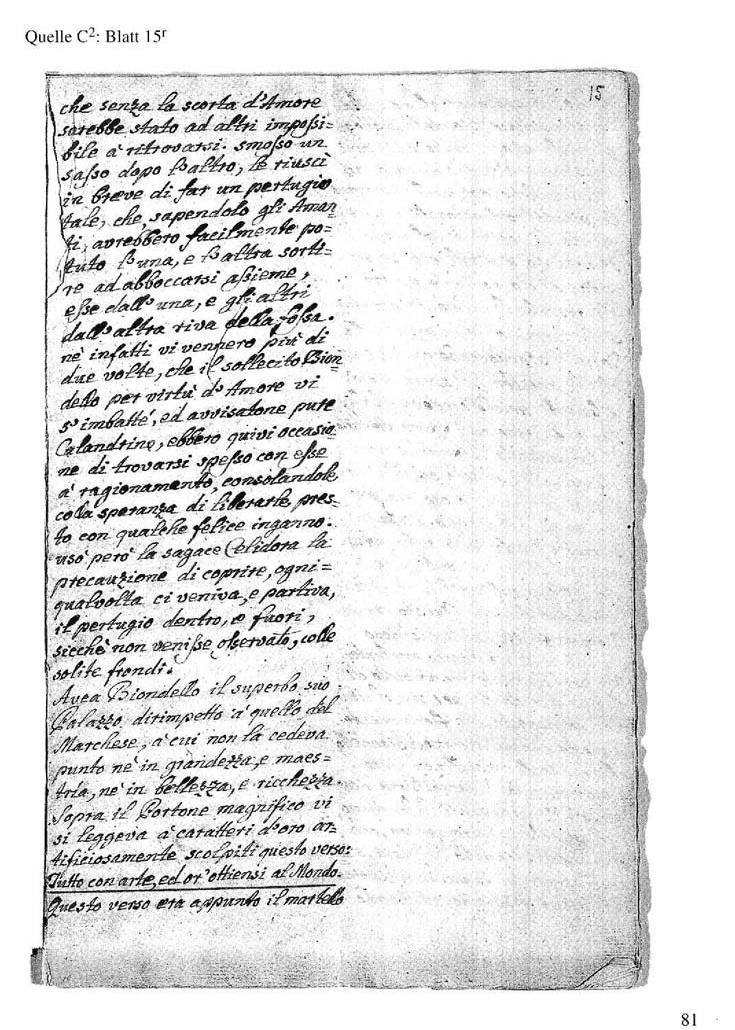 Quelle C²: Blatt 15ʳ
15
che senza la scorta d'Amore
sarebbe stato ad altri impossi=
bile à ritrovarsi. smosso un
sasso dopo l'altro, le riuscì
in breve di far un pertugio
tale, che, sapendolo gli Aman=
ti, avrebbero facilmente po=
tuto l'una, e l'altra sorti=
re ad abboccarsi assieme,
esse dall'una, e gli altri
dall'altra riva della fossa.
nè infatti vi vennero più di
due volte, che il sollecito Bion
dello per virtù d'Amore vi
s'imbattè, ed avvisatone pure
Calandrino, ebbero quivi occasio=
ne di trovarsi spesso con esse
à ragionamento, consolandole
colla speranza di liberarle pres=
to con qualche felice inganno.
usò però la sagace Celidora la
precauzione di coprire, ogni=
qualvolta ci veniva, e partiva,
il pertugio dentro, e fuori,
sicchè non venisse osservato, colle
solite frondi.
Avea Biondello il superbo suo
Palazzo dirimpetto à quello del
Marchese, à cui non la cedeva
punto nè in grandezza, e maes=
tria, nè in bellezza, e ricchezza.
Sopra il Portone magnifico vi
si leggeva à caratteri d'oro ar=
tificiosamente scolpiti questo verso:
Tutto con arte, ed or' ottiensi al Mondo.
Questo verso era appunto il martello
81